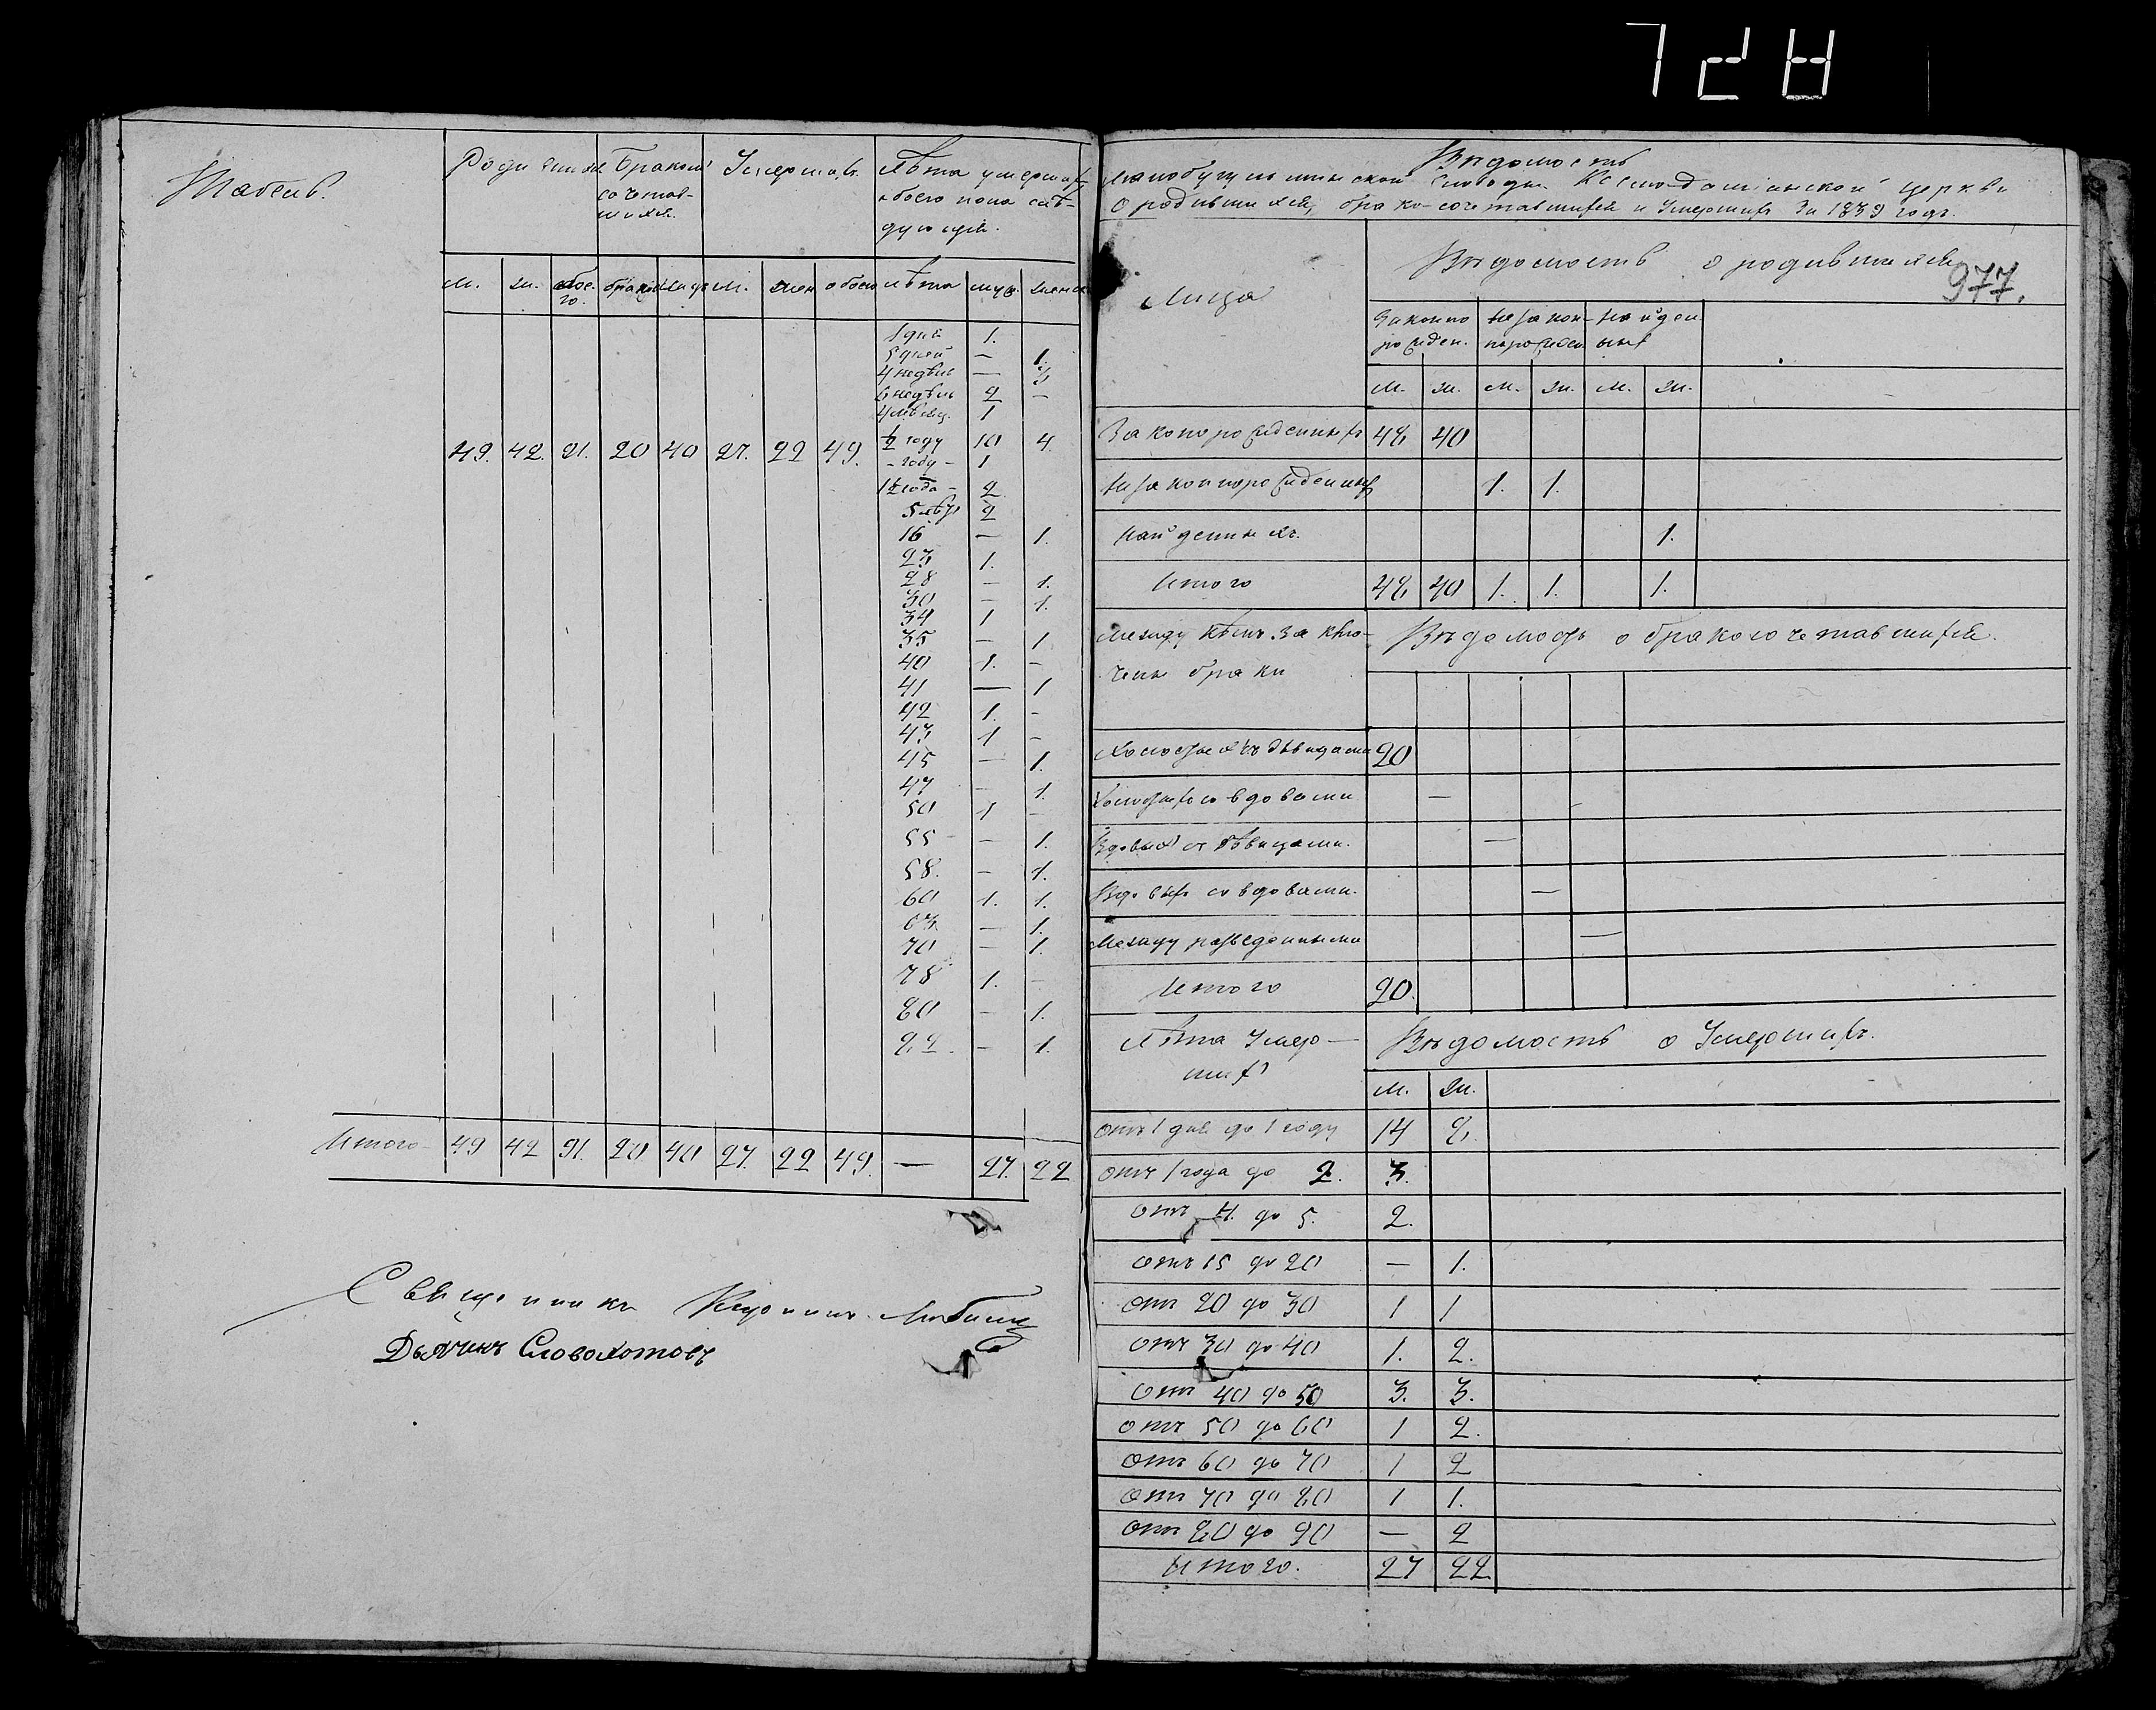 728
Табель.
Родившихся Бракомъ сочетавшихся. Умершихъ. Лѣта умершихъ обоего пола слѣдующія.
м. ж. обоего. браковъ лицъ м. жен. обоего лѣта муж. женск.
1 дня 1.
5 дней — 1.
4 недѣль — 3
6 недѣль 2 —
4 мѣсяц. 1
49. 42. 91. 20 40 27. 22 49. ½ году 10 4
- году - 1
1½ года - 2
5 лѣтъ 2
16 — 1.
23 1.
28 — 1.
30 — 1.
34 1
35 — 1
40 1. -
41 — 1
42 1. -
43 1 -
45 — 1.
47 - 1.
50 1 -
55 — 1.
58. - 1.
60 1. 1.
63. — 1.
70 — 1.
78 1. -
80 — 1.
82. — 1.
Итого 49 42 91. 20 40 27. 22 49. — 27. 22
Священникъ
Дьячекъ Словохотовъ
Вѣдомость
слободы Космодаміанской церкви
О родившихся, брако-сочетавшихся и Умершихъ За 1839 годъ.
977.
Лица Вѣдомость о родившихся
Законно рожден. Незаконнорожден. Найденных
м. ж. м. ж. м. ж.
Законорожденныхъ 48 40
Незаконнорожденныхъ 1. 1.
Найденныхъ. 1.
Итого 48 40 1. 1. 1.
Между кѣмъ заключены браки Вѣдомость о бракосочетавшихся.
Холостыхъ съ дѣвицами 20
Холостыхъ со вдовами —
Вдовыхъ съ дѣвицами. —
Вдовыхъ со вдовами. —
Между разведенными —
Итого 20.
Лѣта Умершихъ Вѣдомость о Умершихъ.
м. ж.
Отъ 1 дня до 1 году 14 8.
Отъ 1 года до 2. 3.
Отъ 4. до 5. 2.
Отъ 15 до 20 — 1.
Отъ 20 до 30 1 1
Отъ 30 до 40 1. 2.
Отъ 40 до 50 3. 3.
Отъ 50 до 60 1 2.
Отъ 60 до 70 1 2
Отъ 70 до 80 1 1.
Отъ 80 до 90 — 2
Итого. 27 22